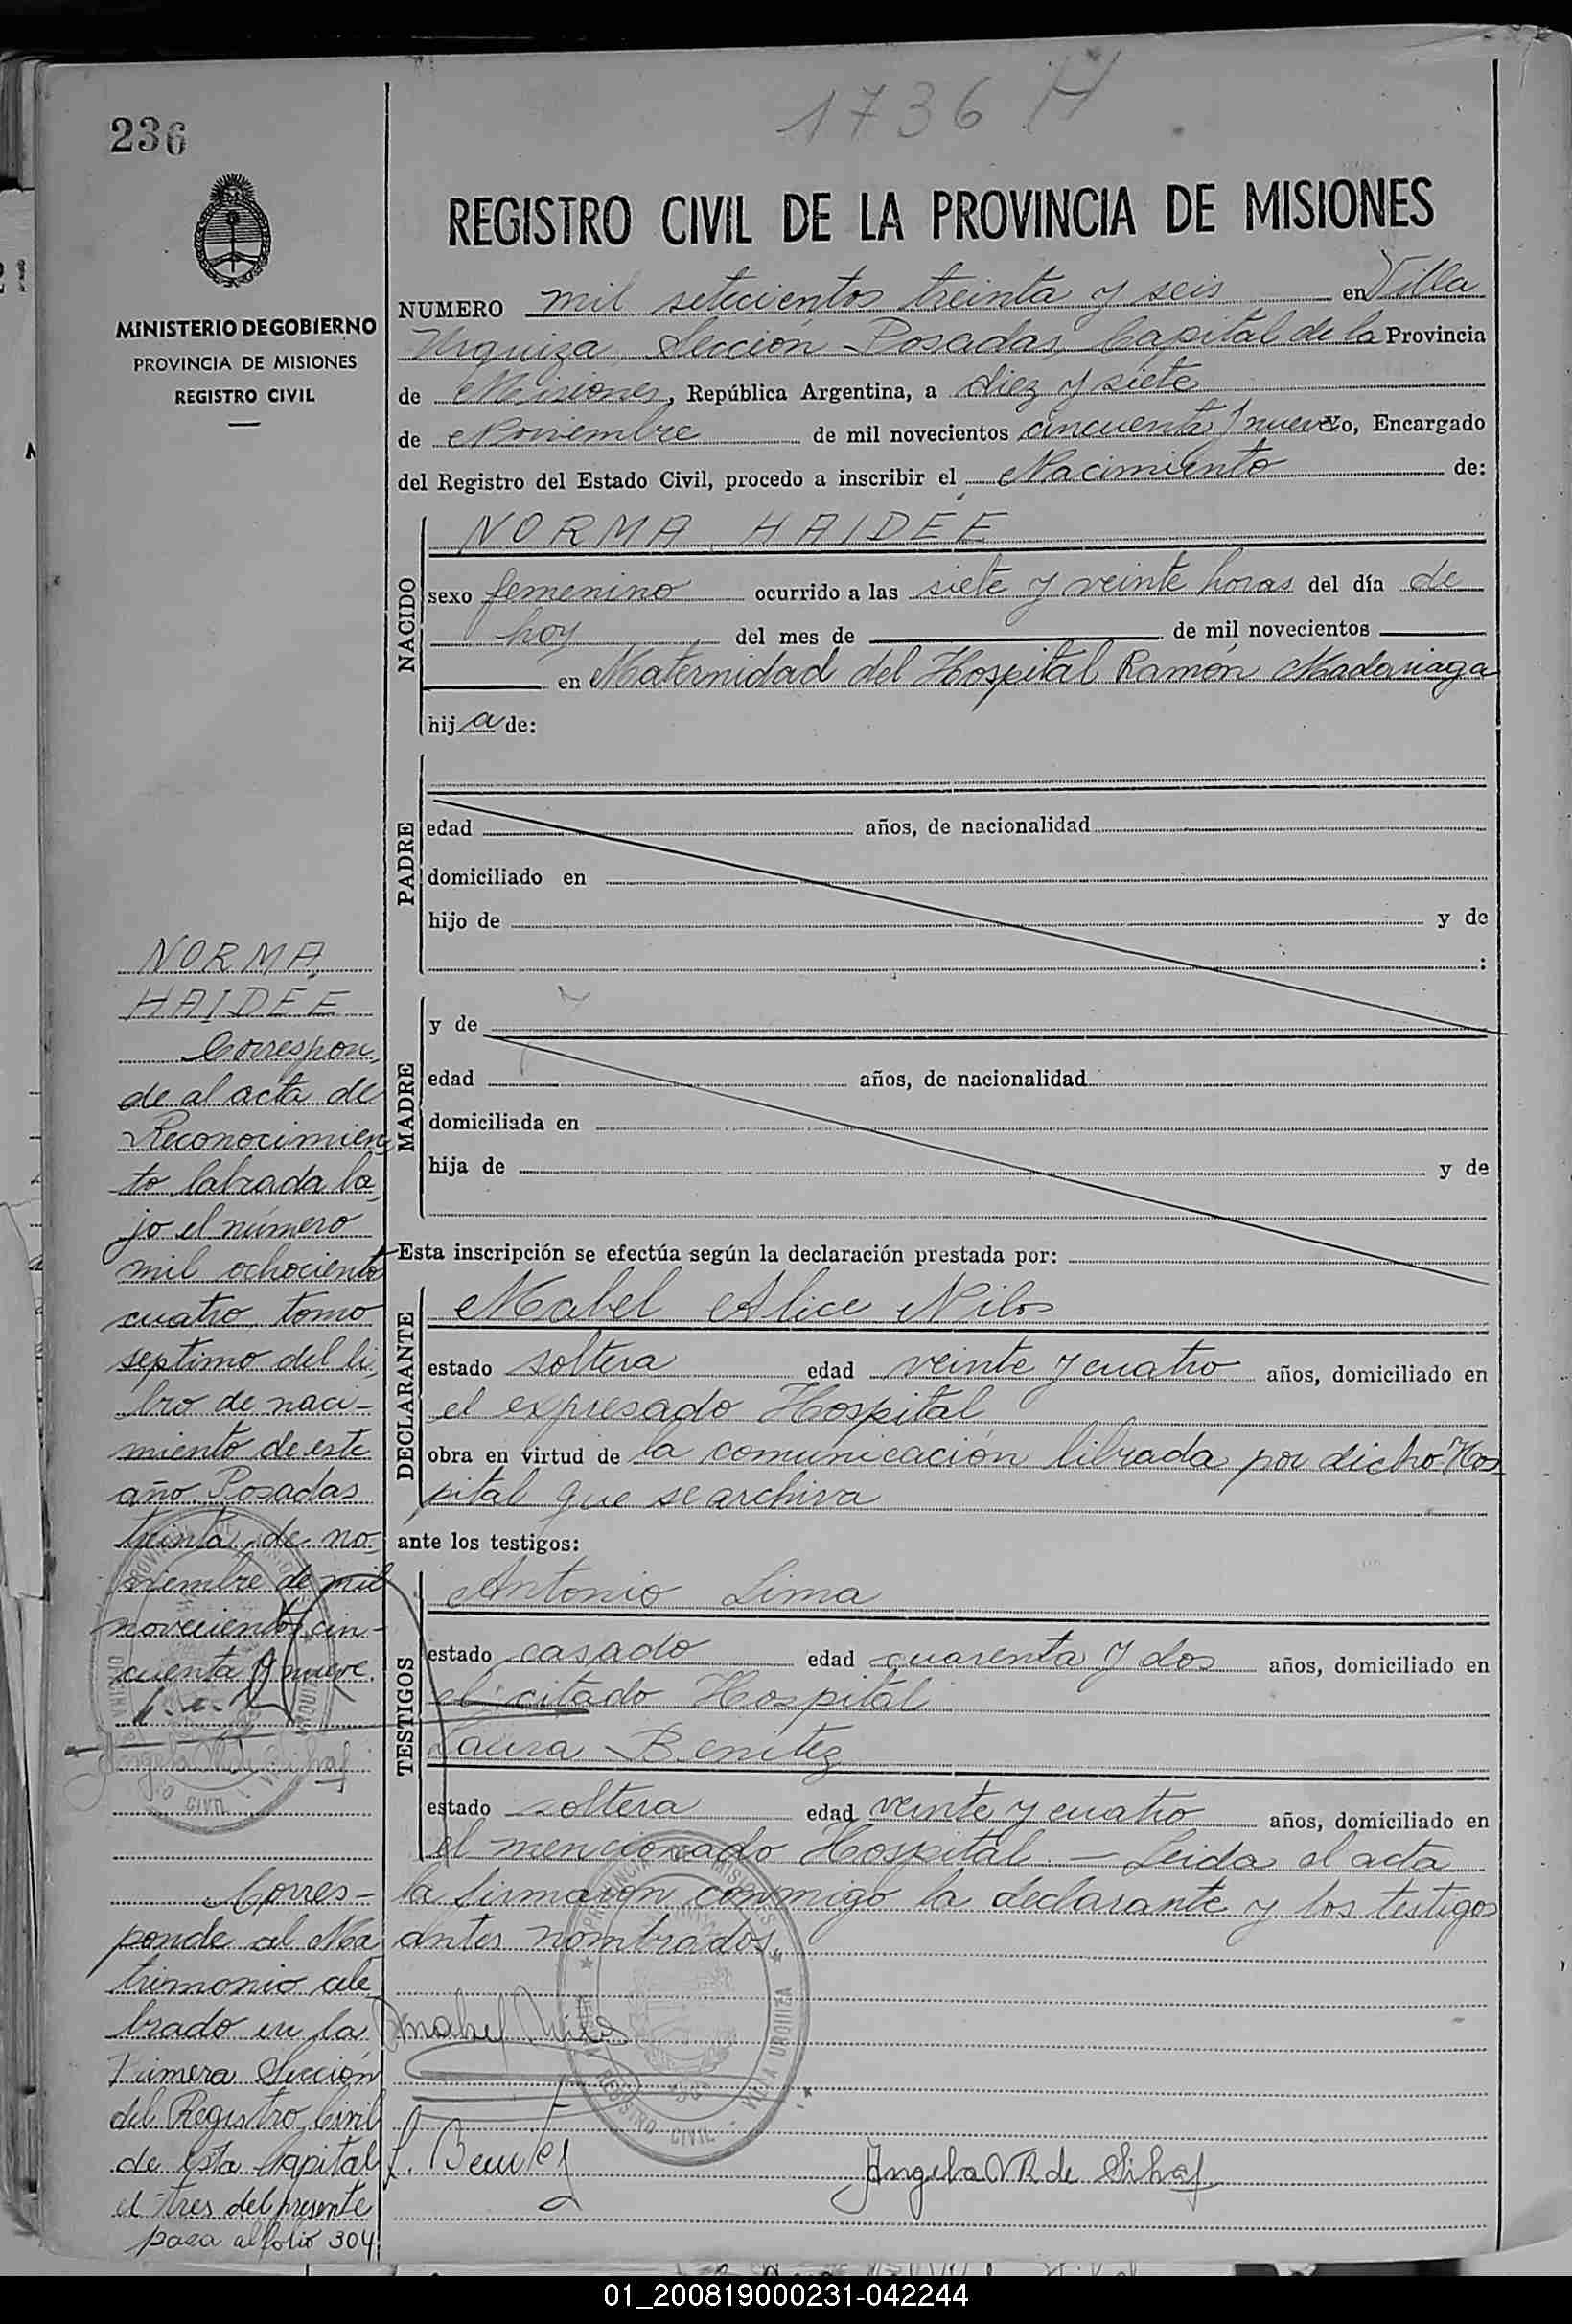 1736 H
236
REGISTRO CIVIL DE LA PROVINCIA DE MISIONES
MINISTERIO DE GOBIERNO
PROVINCIA DE MISIONES
REGISTRO CIVIL
NUMERO mil setecientos treinta y seis en Villa
Urquiza, Sección Posadas, Capital de la Provincia
de Misiones, República Argentina, a diez y siete
de Noviembre de mil novecientos cincuenta y nueve yo, Encargado
del Registro del Estado Civil, procedo a inscribir el Nacimiento de:
NACIDO
NORMA HAIDÉE
sexo femenino ocurrido a las siete y veinte horas del día de
hoy del mes de de mil novecientos
en Maternidad del Hospital Ramón Madariaga
hija de:
PADRE
edad años, de nacionalidad
domiciliado en
hijo de y de
:
MADRE
y de
edad años, de nacionalidad
domiciliada en
hija de y de
Esta inscripción se efectúa según la declaración prestada por:
DECLARANTE
Mabel Alice Nilos
estado soltera edad veinte y cuatro años, domiciliado en
el expresado Hospital
obra en virtud de la comunicación librada por dicho Hos
pital que se archiva
ante los testigos:
TESTIGOS
Antonio Lima
estado casado edad cuarenta y dos años, domiciliado en
el citado Hospital
Laura Benitez
estado soltera edad veinte y cuatro años, domiciliado en
el mencionado Hospital. — Leida el acta
la firmaron conmigo la declarante y los testigos
antes nombrados.
Mabel Nilos
L. Benitez
Angela VR de Sihaf
NORMA
HAIDÉE
Correspon,
de al acta de
Reconocimien
to labrada ba,
jo el número
mil ochociento
cuatro, tomo
septimo del li,
bro de naci-
miento de este
año. Posadas
treinta, de no,
viembre de mil
novecientos cin-
cuenta y nueve.
Corres-
ponde al Ma
trimonio cele
brado en la
Primera Sección
del Registro Civil
de esta Capital
el tres del presente
pasa al folio 304
PROVINCIA DE MISIONES
REGISTRO CIVIL
VILLA URQUIZA
01_200819000231-042244